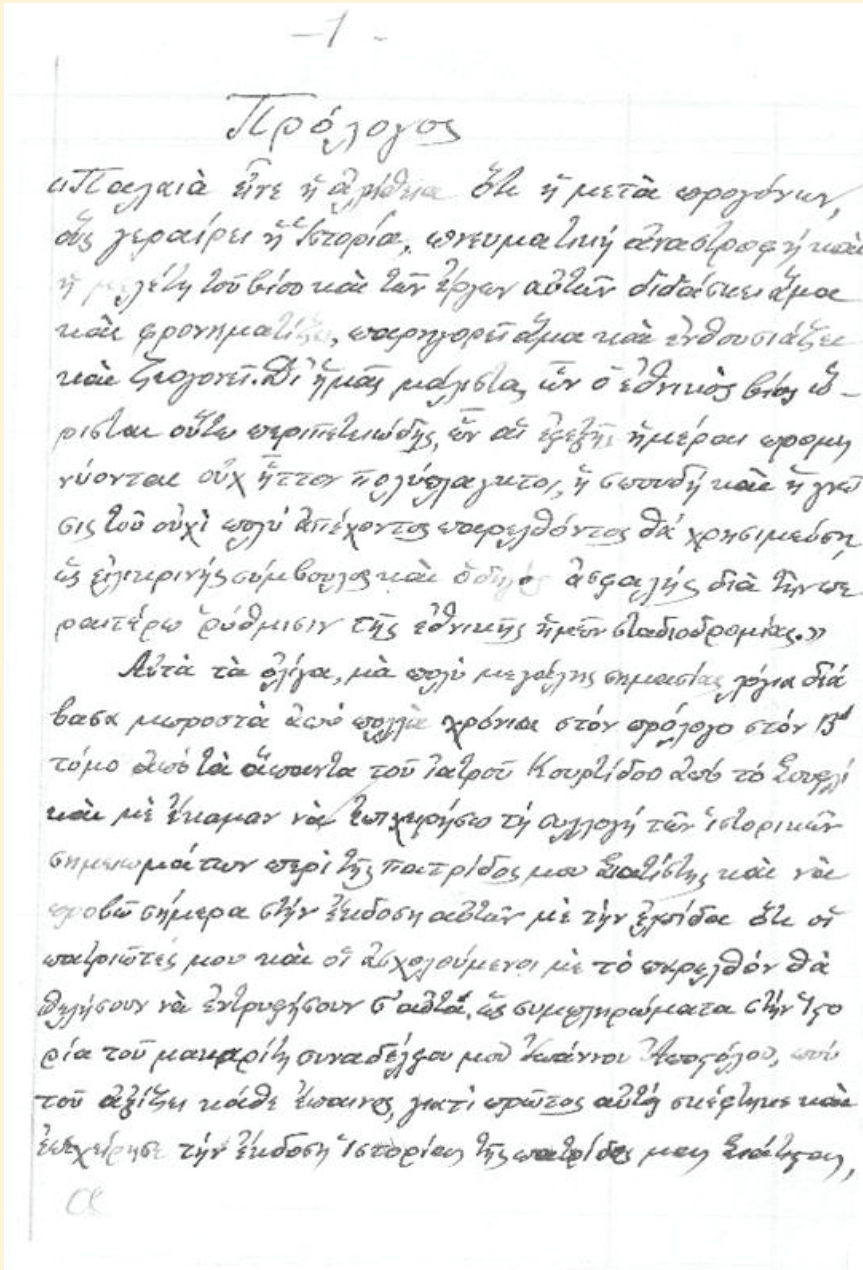 -1-
Πρόλογος
«Παλαιὰ εἶνε ἡ ἀλήθεια ὅτι ἡ μετὰ προγόνων,
οὓς γεραίρει ἡ Ἱστορία, πνευματικὴ ἀναστροφὴ καὶ
ἡ μελέτη τοῦ βίου καὶ τῶν ἔργων αὐτῶν διδάσκει ἅμα
καὶ φρονηματίζει, παρηγορεῖ ἅμα καὶ ἐνθουσιάζει
καὶ ζωογονεῖ. Δι' ἡμᾶς μάλιστα, ὧν ὁ ἐθνικὸς βίος ὥ-
ρισται οὕτω περιπετειώδης, ὧν αἱ ἐφεξῆς ἡμέραι προμη
νύονται οὐχ ἧττον πολύπλαγκτοι, ἡ σπουδὴ καὶ ἡ γνῶ
σις τοῦ οὐχὶ πολὺ ἀπέχοντος παρελθόντος θὰ χρησιμεύση
ὡς εἰλικρινής σύμβουλος καὶ ὁδηγὸς ἀσφαλὴς διὰ τὴν πε
ραιτέρω ρύθμισιν τῆς ἐθνικῆς ἡμῶν σταδιοδρομίας.»
Αὐτὰ τὰ ὀλίγα, μὰ πολὺ μεγάλης σημασίας λόγια διά
βασα μπροστὰ ἀπὸ πολλὰ χρόνια στὸν πρόλογο στὸν Β'
τόμο ἀπὸ τὰ ἅπαντα τοῦ ἰατροῦ Κουρτίδου ἀπὸ τὸ Σουφλί
καὶ μὲ ἔκαμαν νὰ ἐπιχειρήσω τὴ συλλογὴ τῶν ἱστορικῶν
σημειωμάτων περὶ τῆς πατρίδος μου Σιατίστης καὶ νὰ
προβῶ σήμερα στὴν ἔκδοση αὐτῶν μὲ τὴν ἐλπίδα ὅτι οἱ
πατριῶτές μου καὶ οἱ ἀσχολούμενοι μὲ τὸ παρελθόν θὰ
θελήσουν νὰ ἐντρυφήσουν σ' αὐτά, ὡς συμπληρώματα στὴν Ἱστο
ρία τοῦ μακαρίτη συναδέλφου μου Ἰωάννου Ἀποστόλου, ποὺ
τοῦ ἀξίζει κάθε ἔπαινος, γιατὶ πρῶτος αὐτὸς σκέφτηκε καὶ
ἐπεχείρησε τὴν ἔκδοση Ἱστορίας τῆς πατρίδας μας Σιάτιστας,